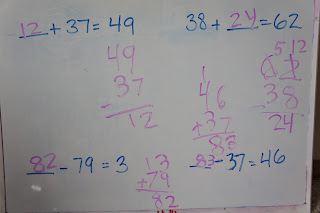 12 + 37 = 49
49
- 37
12
38 + 24 = 62
5 12
6 2
- 38
24
1
46
+ 37
83
82 - 79 = 3
13
+ 79
82
83 - 37 = 46